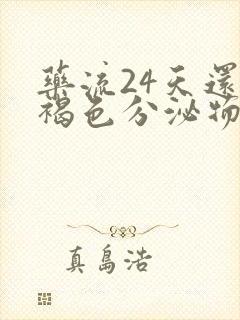 藥流24天還
褐色分泌物
真島浩